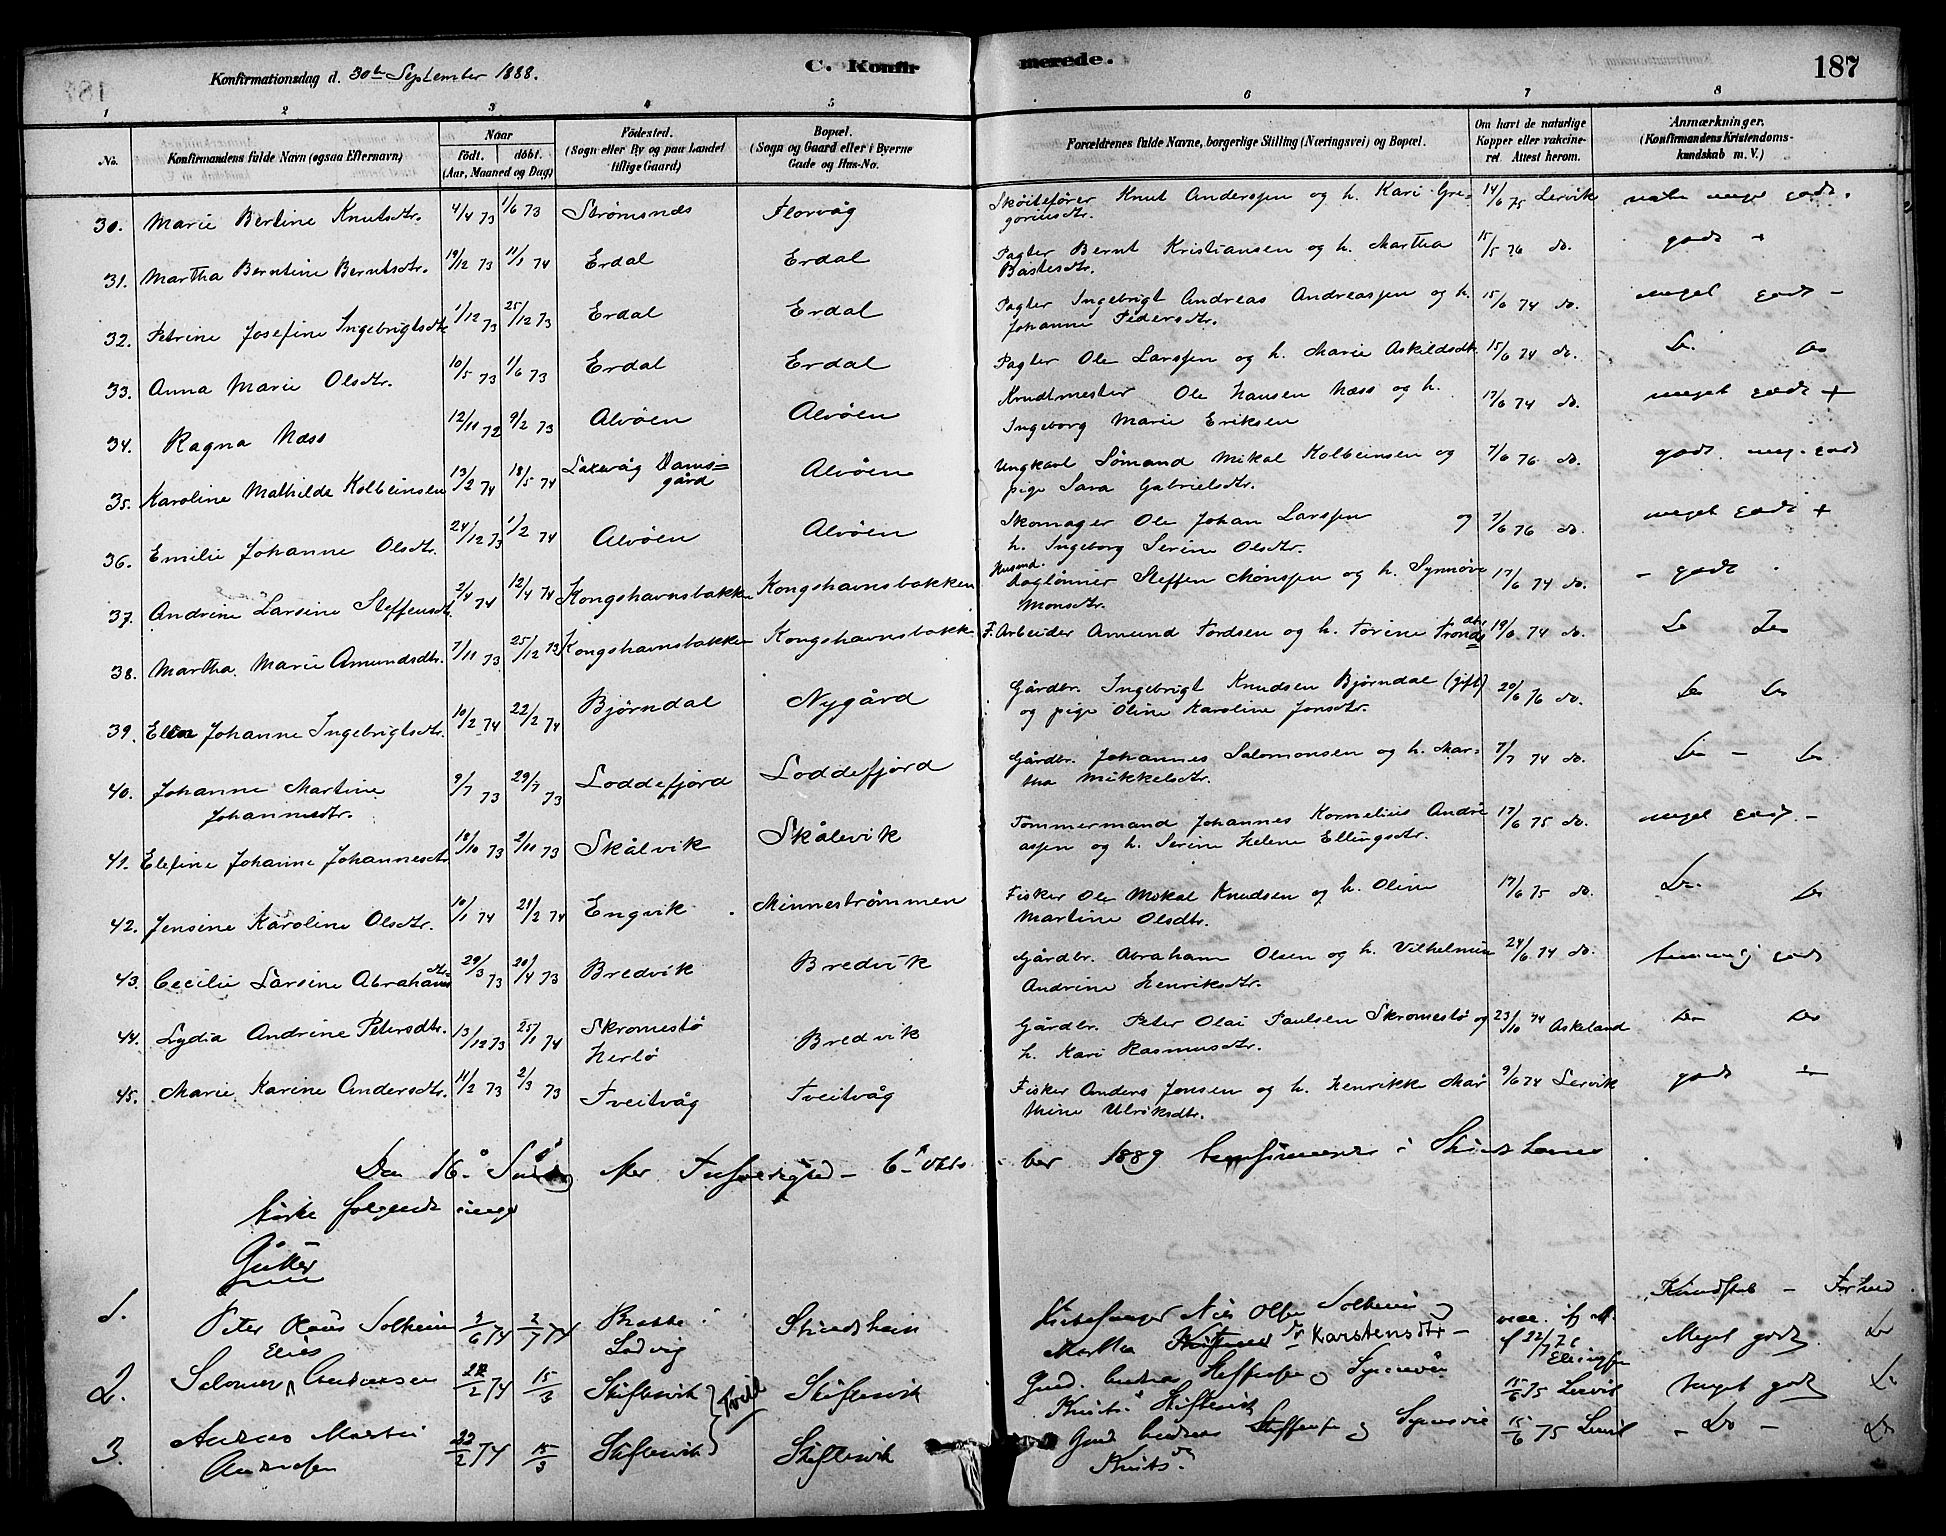 Konfirmationsdag d. 30te September 1888. C. Konfir merede. 187
1 2 3 4 5 6 7 8
No. Konfirmandens fulde Navn (ogsaa Efternavn) Naar født. døbt. (Aar, Maaned og Dag) Fødested. (Sogn eller By og paa Landet tillige Gaard) Bopæl. (Sogn og Gaard eller i Byerne Gade og Hus-No. Forældrenes fulde Navne, borgerlige Stilling (Næringsvei) og Bopæl. Om havt de naturlige Kopper eller vakcineret Attest herom. Anmærkninger. (Konfirmandens Kristendomskundskab m. V.)
30. Marie Bertine Knutsdtr. 4/4 73 1/6 73 Strømsnæs Florvåg Skøitefører Knut Anderssen og h. Kari Gregoriusdtr. 14/6 75 Lervik meget godt.
31. Martha Berntine Berntsdtr. 19/12 73 11/1 74 Erdal Erdal Pagter Bernt Kristiansen og h. Martha Bastesdtr. 15/5 76 do. godt
32. Petrine Josefine Ingebrigtsdtr 1/12 73 25/12 73 Erdal Erdal Pagter Ingebrigt Andreas Andreassen og h. Johanne Pedersdtr. 15/6 74 do. meget godt -
33. Anna Marie Olsdtr. 10/5 73 1/6 73 Erdal Erdal Pagter Ole Larssen og h. Marie Askildsdtr. 15/6 74 do. Do. Do
34. Ragna Næss 12/11 72 9/2 73 Alvøen Alvøen Krudtmester Ole Hansen Næss og h. Ingeborg Marie Eriksen 17/6 74 do. meget godt +
35. Karoline Mathilde Kolbeinsen 13/2 74 18/5 74 Laxevåg Damsgård Alvøen Ungkarl Sømand Mikal Kolbeinsen og pige Sara Gabrielsdtr. 7/6 76 do. godt. meg. godt
36. Emilie Johanne Olsdtr. 24/12 73 1/2 74 Alvøen Alvøen Skomager Ole Johan Larssen og h. Ingeborg Serine Olsdtr. 7/6 76 do. meget godt +
37. Andrine Larsine Steffensdtr. 2/4 74 12/4 74 Kongshavnsbakken Kongshavnsbakken Husmd. Daglønner Steffen Monssen og h. Synnøve Monsdtr. 17/6 74 do. - godt
38. Martha Marie Amundsdtr. 7/11 73 25/12 73 Kongshavnsbakken Kongshavnsbakk F. Arbeider Amund Tordsen og h. Torine Tronds=dtr 19/6 74 do. Do Do
39. Ellen Johanne Ingebrigtsdtr. 10/2 74 22/2 74 Bjørndal Nygård Gårdbr. Ingebrigt Knudsen Bjørndal (gift) og pige Oline Karoline Jonsdtr. 20/6 76 do. Do Do
40. Johanne Martine Johannesdtr. 9/7 73 29/7 73 Loddefjord Loddefjord Gårdbr. Johannes Salomonsen og h. Martha Mikkelsdtr. 7/7 74 do. Do - Do
41. Elefine Johanne Johannesdtr 18/10 73 2/11 73 Skålvik Skålevik Tømmermand Johannes Kornelius Andreassen og h. Serine Helene Ellingsdtr. 17/6 75 do. meget godt. -
42. Jensine Karoline Olsdtr. 10/1 74 21/2 74 Engvik Minnestrømmen Fisker Ole Mikal Knudsen og h. Oline Martine Olsdtr. 17/6 75 do. Do. Do
43. Cecilie Larsine Abrahamsdtr 29/3 73 20/4 73 Bredvik Bredvik Gårdbr. Abraham Olsen og h. Vilhelmine Andrine Henriksdtr. 24/6 74 do. temmelig godt
44. Lydia Andrine Petersdtr. 13/12 73 25/1 74 Skromestø Herlø Bredvik Gårdbr. Peter Olai Paulsen Skromestø og h. Kari Rasmusdtr. 23/10 74 Askeland Do Do
45. Marie Karine Andersdtr. 11/2 73 2/3 73 Tveitvåg Tveitvåg Fisker Anders Jonsen og h. Henrikke Marthine Ulriksdtr. 9/6 74 Lervik godt
Den 16. Søndag efter Trefoldighed - 6. Okto ber 1889 konfirmeredes i
kirke følgende unge
Gutter
Kundskab - Forhold
1. Peter Elias Solheim 2/6 74 2/7 74 Nils Olsen Solheim og Martha Karstensdtr - 22/7 76 Meget godt Do
2. Salomon Andersen 22/2 74 15/3 Skiftesvik Tveit Skiftesvik Gmd. Steffensen og Synneva Knuts Skiftesvik 15/6 75 Lervik Meget godt Do
3. Martin Andersen 22/2 74 15/3 Skiftesvik Skiftesvik Gmd Andreas Steffensen og Synneva Knuts 15/6 75 Lervik - Do - Do